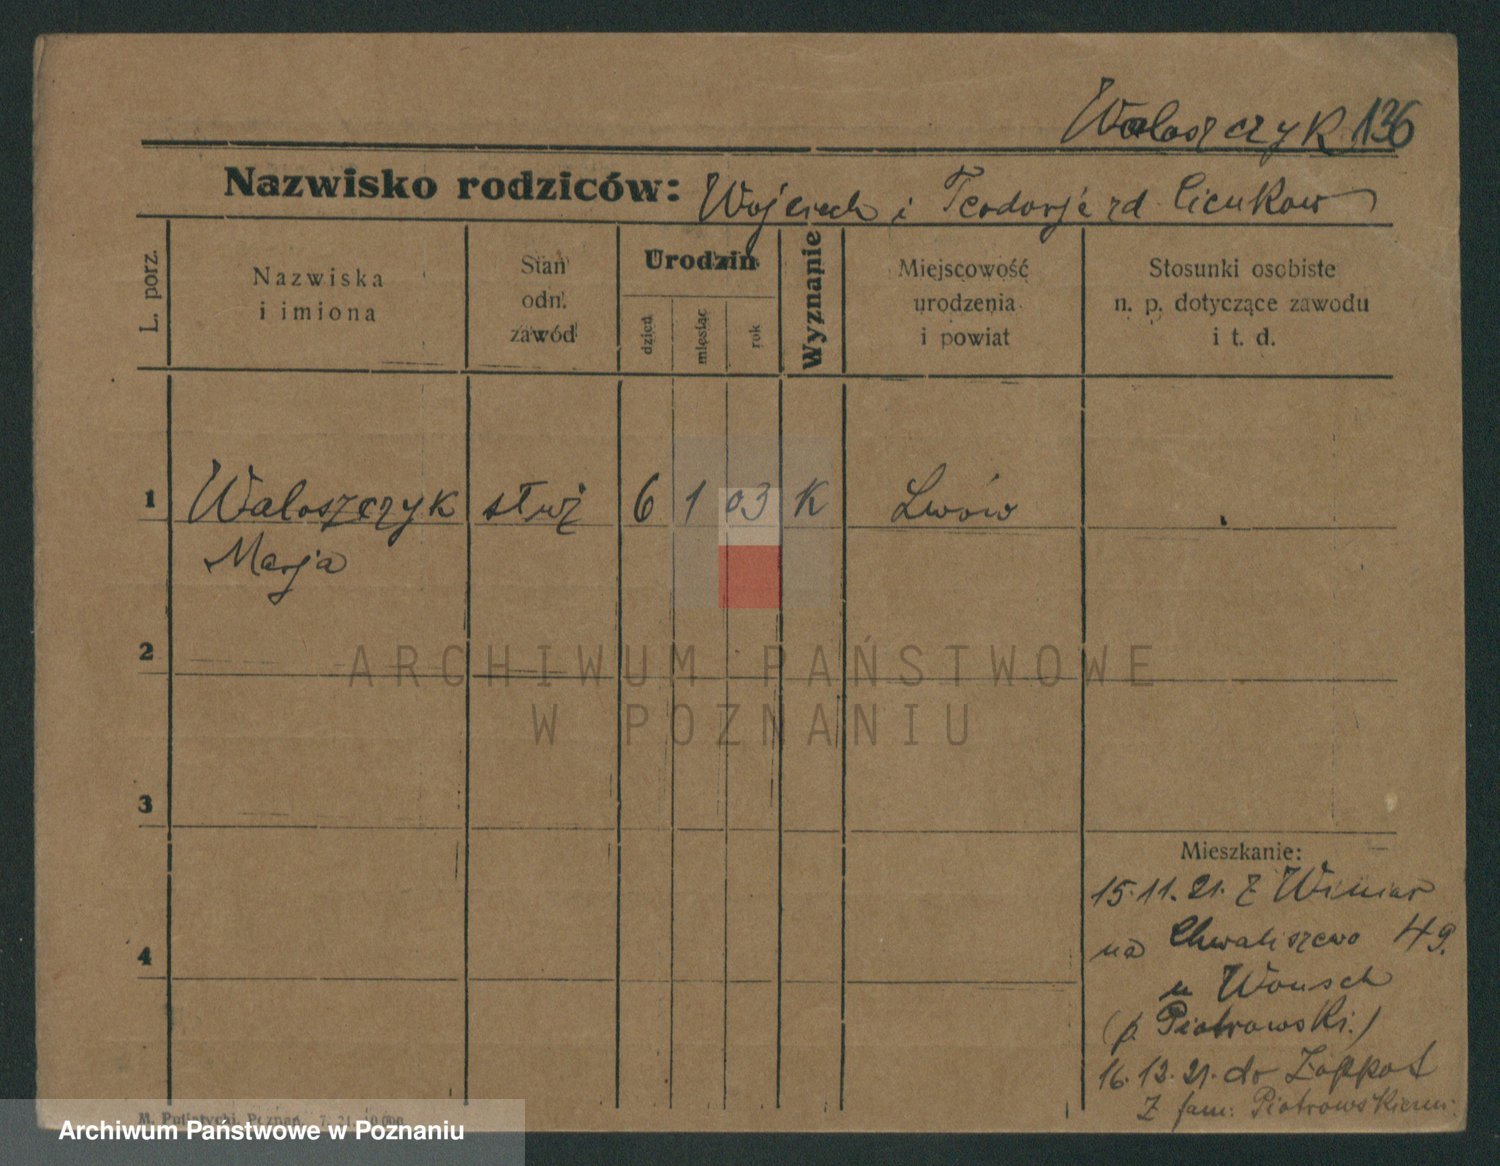 Waloszczyk 136
Nazwisko rodziców: Wojciech i Teodorja rd Cicukow
L. porz.
Nazwiska
i imiona
Stan
odn.
zawód
Urodzin
dzień
miesiąc
rok
Wyznanie
Miejscowość
urodzenia
i powiat
Stosunki osobiste
n. p. dotyczące zawodu
i t. d.
1 Waloszczyk służ 6 1 03 K Lwów
Marja
2
3
4
Mieszkanie:
15.11.21. z Winiar
na Chwaliszewo 49.
u Wonsch
(p. Piotrowski.)
16.12.21. do Zoppot
z fam: Piotrowskiemi
M. Poznań
ARCHIWUM PAŃSTWOWE
W POZNANIU
Archiwum Państwowe w Poznaniu